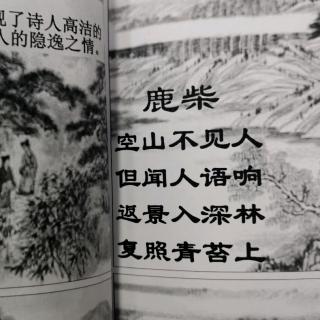 现了诗人高洁的
人的隐逸之情。
鹿柴
空山不见人
但闻人语响
返景入深林
复照青苔上